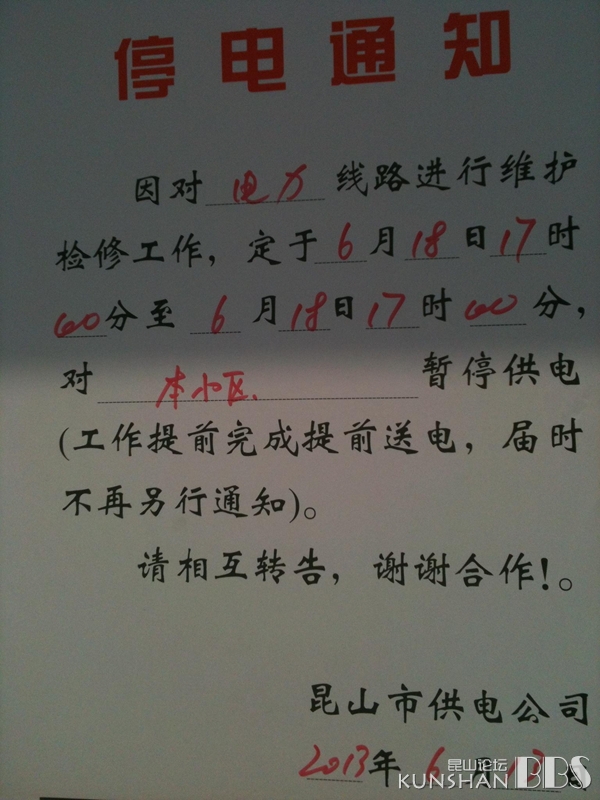 停电通知
因对电力线路进行维护
检修工作，定于6月18日17时
00分至6月18日17时00分，
对本小区暂停供电
(工作提前完成提前送电，届时
不再另行通知)。
请相互转告，谢谢合作!。
昆山市供电公司
2013年6月
昆山论坛
KUNSHAN BBS